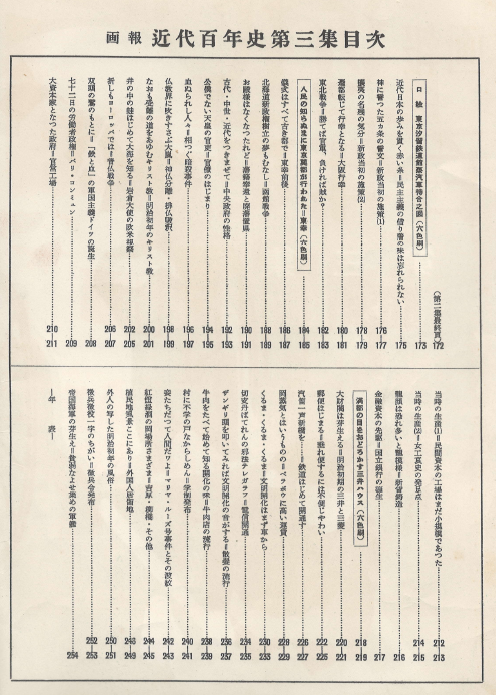 画報 近代百年史第三集目次
(第二集最終頁) 172
口繪 東京汐留鉄道館蒸汽車待合之図(六色刷) 173
近代日本の歩みを貫く赤い糸=民主主義の借り着の味は忘れられない 175
神に誓つた五カ条の誓文=新政当初の施策(1) 176 177
攘夷の名残の気分=新政当初の施策(2) 178 179
遷都転じて行幸となる=大阪行幸 180 181
東北戦争=勝てば官軍、負ければ賊か? 182 183
人民の知らぬまに東京遷都が行われた=東幸(六色刷) 184 185
儀式はすべて古き都で=東幸前後 186 187
北海道新政権樹立の夢もむなし=函館戦争 188 189
お殿様はなくなつたけれど=藩籍奉還と廃藩置県 190 191
古代・中世・近代をつきまぜて=中央政府の性格 192 193
公僕でない天皇の官吏=官僚のはじまり 194 195
血ぬられし人々=相つぐ暗殺事件 196 197
仏教界に吹きすさぶ大嵐=神仏分離・排仏毀釈 198 199
なおも受難の道をあゆむキリスト教=明治初年のキリスト教 200 201
井の中の蛙はじめて大海を知る=岩倉大使の欧米視察 202 205
新しもヨーロッパでは=普仏戦争 206 207
双頭の鷲のもとに=「鉄と血」の軍国主義ドイツの誕生 208
七十二日の労働者政権=パリ・コンミューン 209
大資本家となつた政府=官営工場 210 211
当時の生産(1)=民間資本の工場はまだ小規模であつた 212 213
当時の生産(2)=女工哀史の発足点 214 215
龍頭は恐れ多いと龍模様=新貨鋳造 216
金融資本の先駆=国立銀行の誕生 217
満都の目をおどろかす三井ハウス(六色刷) 218 219
大財閥は芽生える=明治初期の三井と三菱 220 221
郵便はじまる=垂れ便するには不便じやわい 222 225
汽笛一声新橋を……=鉄道はじめて開通す 226 227
岡蒸気とはいうものの=ベラボウに高い運賃 228 229
くるま・くるま・くるま=文明開化はまず車から 230 233
切支丹ばてれんの邪法テレガラフ=電信開通 234 235
ザンギリ頭を叩いてみれば文明開化の音がする=散髪の流行 236 237
牛肉をたべて始めて知る開化の味=牛肉店の流行 238 239
村に不学の戸なからしめん=学制発布 240 241
妾たちだつて人間だワよ=マリヤ・ルーズ号事件とその波紋 242 243
紅燈緑酒の岡場所さまざま=吉原・深橋・その他 244 245
植民地風景ここにあり=外国人居留地 248 249
外人の写した明治初年の風俗 250 251
徴兵懲役一字のちがい=徴兵令発布 252 253
帝国海軍の芽生え=貧弱なよせ集めの軍艦 254
―年表―